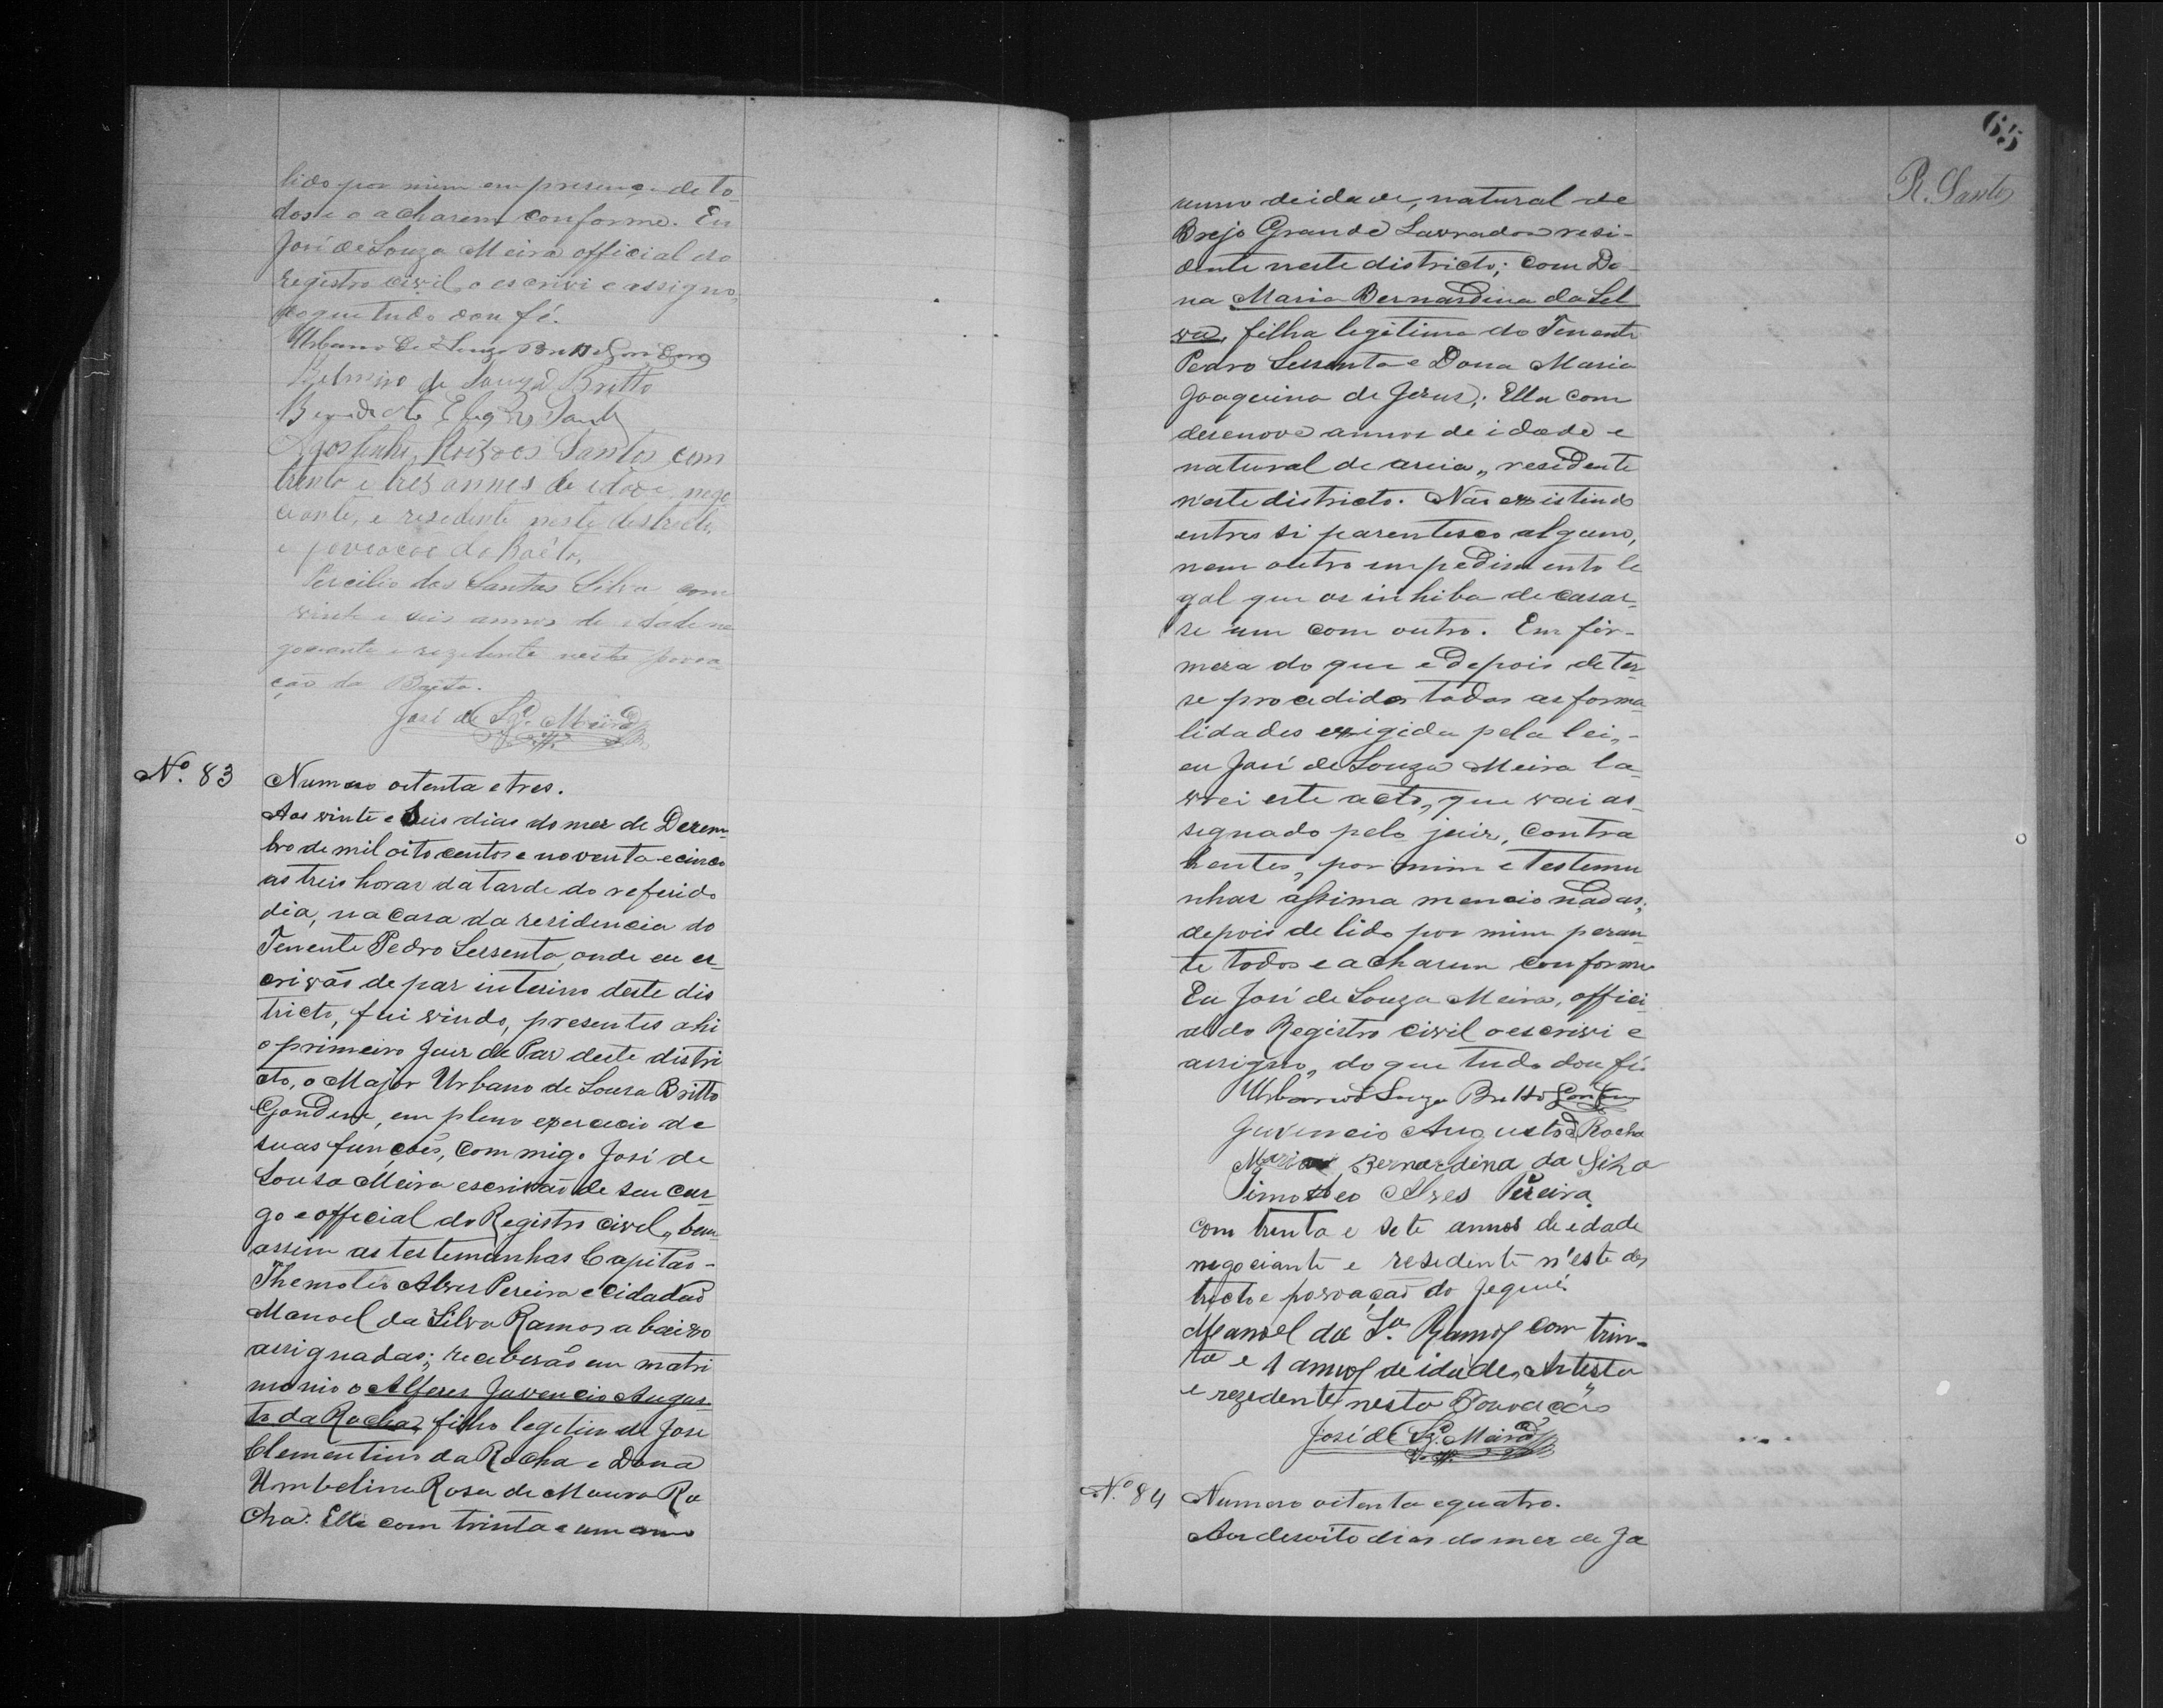 lido por mim em presença de to
dos e o acharem conforme. Eu
José de Souza Meira official do
registro civil o escrivi e assigno,
do que tudo dou fé.
Urbano de Souza Britto Gondim
Belmiro de Souza Britto
Santos com
trinta e tres annos de idade, nego
ciante, e resedente neste destricto,
e povoacao da Baêta,
Percilio dos Santos Silva com
vinte e seis annos de idade ne
gociante e rezedente nesta povoa
ção da Baêta.
José de Sza. Meira
Nº. 83
Numero oitenta e tres.
Aos vinte e Seis dias do mez de Dezem
bro de mil oito centos e noventa e cinco
as treis horas da tarde do referido
dia, na casa da residencia do
Tenente Pedro Sessenta, onde eu es
crivão de paz interino deste dis
tricto, fui vindo, presentes ahi
o primeiro Juiz de Paz deste distri
cto, o Major Urbano de Sousa Britto
Gondim, em pleno exercicio de
suas funções, commigo José de
Sousa Meira escrivão de seu car
go e official do Registro civel, bem
assim as testemunhas Capitão-
Themoteo Alves Pereira e Cidadão
Manoel da Silva Ramos abaixo
assignadas; receberão em matri
monio o Alferes Juvencio Augus
to da Rocha, filho legitimo de José
Clementino da Rocha e Dona
Umbelina Rosa de Moura Ro
cha. Elle com trinta e um anno
65
R. Santos
anno de idade, natural de
Brejo Grande Lavrador resi-
dente neste districto; com Do-
na Maria Bernardina da Sil
va, filha legitima do Tenente
Pedro Sessenta e Dona Maria
Joaquina de Jesus; Ella com
desenove annos de idade e
natural de areia, residente
n'este districto. Não existindo
entres si parentesco algum,
nem outro impedimento le
gal que os inhiba de casar-
se um com outro. Em fir-
meza do que e depois de ter-
se procedidos todas as forma
lidades exigida pela lei,-
eu José de Souza Meira la-
vrei este acto, que vai as-
segnado pelo juiz, contra
hentes, por mim e testemu
nhas assima mencionadas;
depois de lido por mim peran-
te todos e acharem conforme
Eu José de Souza Meira, offici
al do Registro civil o escrivi e
assigno, do que tudo dou fé.
Urbano de Souza Britto Gondim
Juvencio Augusto da Rocha
Maria Bernardina da Silva
Timotheo Alves Pereira
com trinta e sete annos de edade
negociante e resedente n'este des
tricto e povoação do Jequié
Manoel da Sa. Ramos com trin-
ta e 1 annos de idade, Artista
e rezedente nesta Povoação
José de Sza. Meira
Nº. 84
Numero oitenta e quatro.
Aos desoito dias do mez de Ja